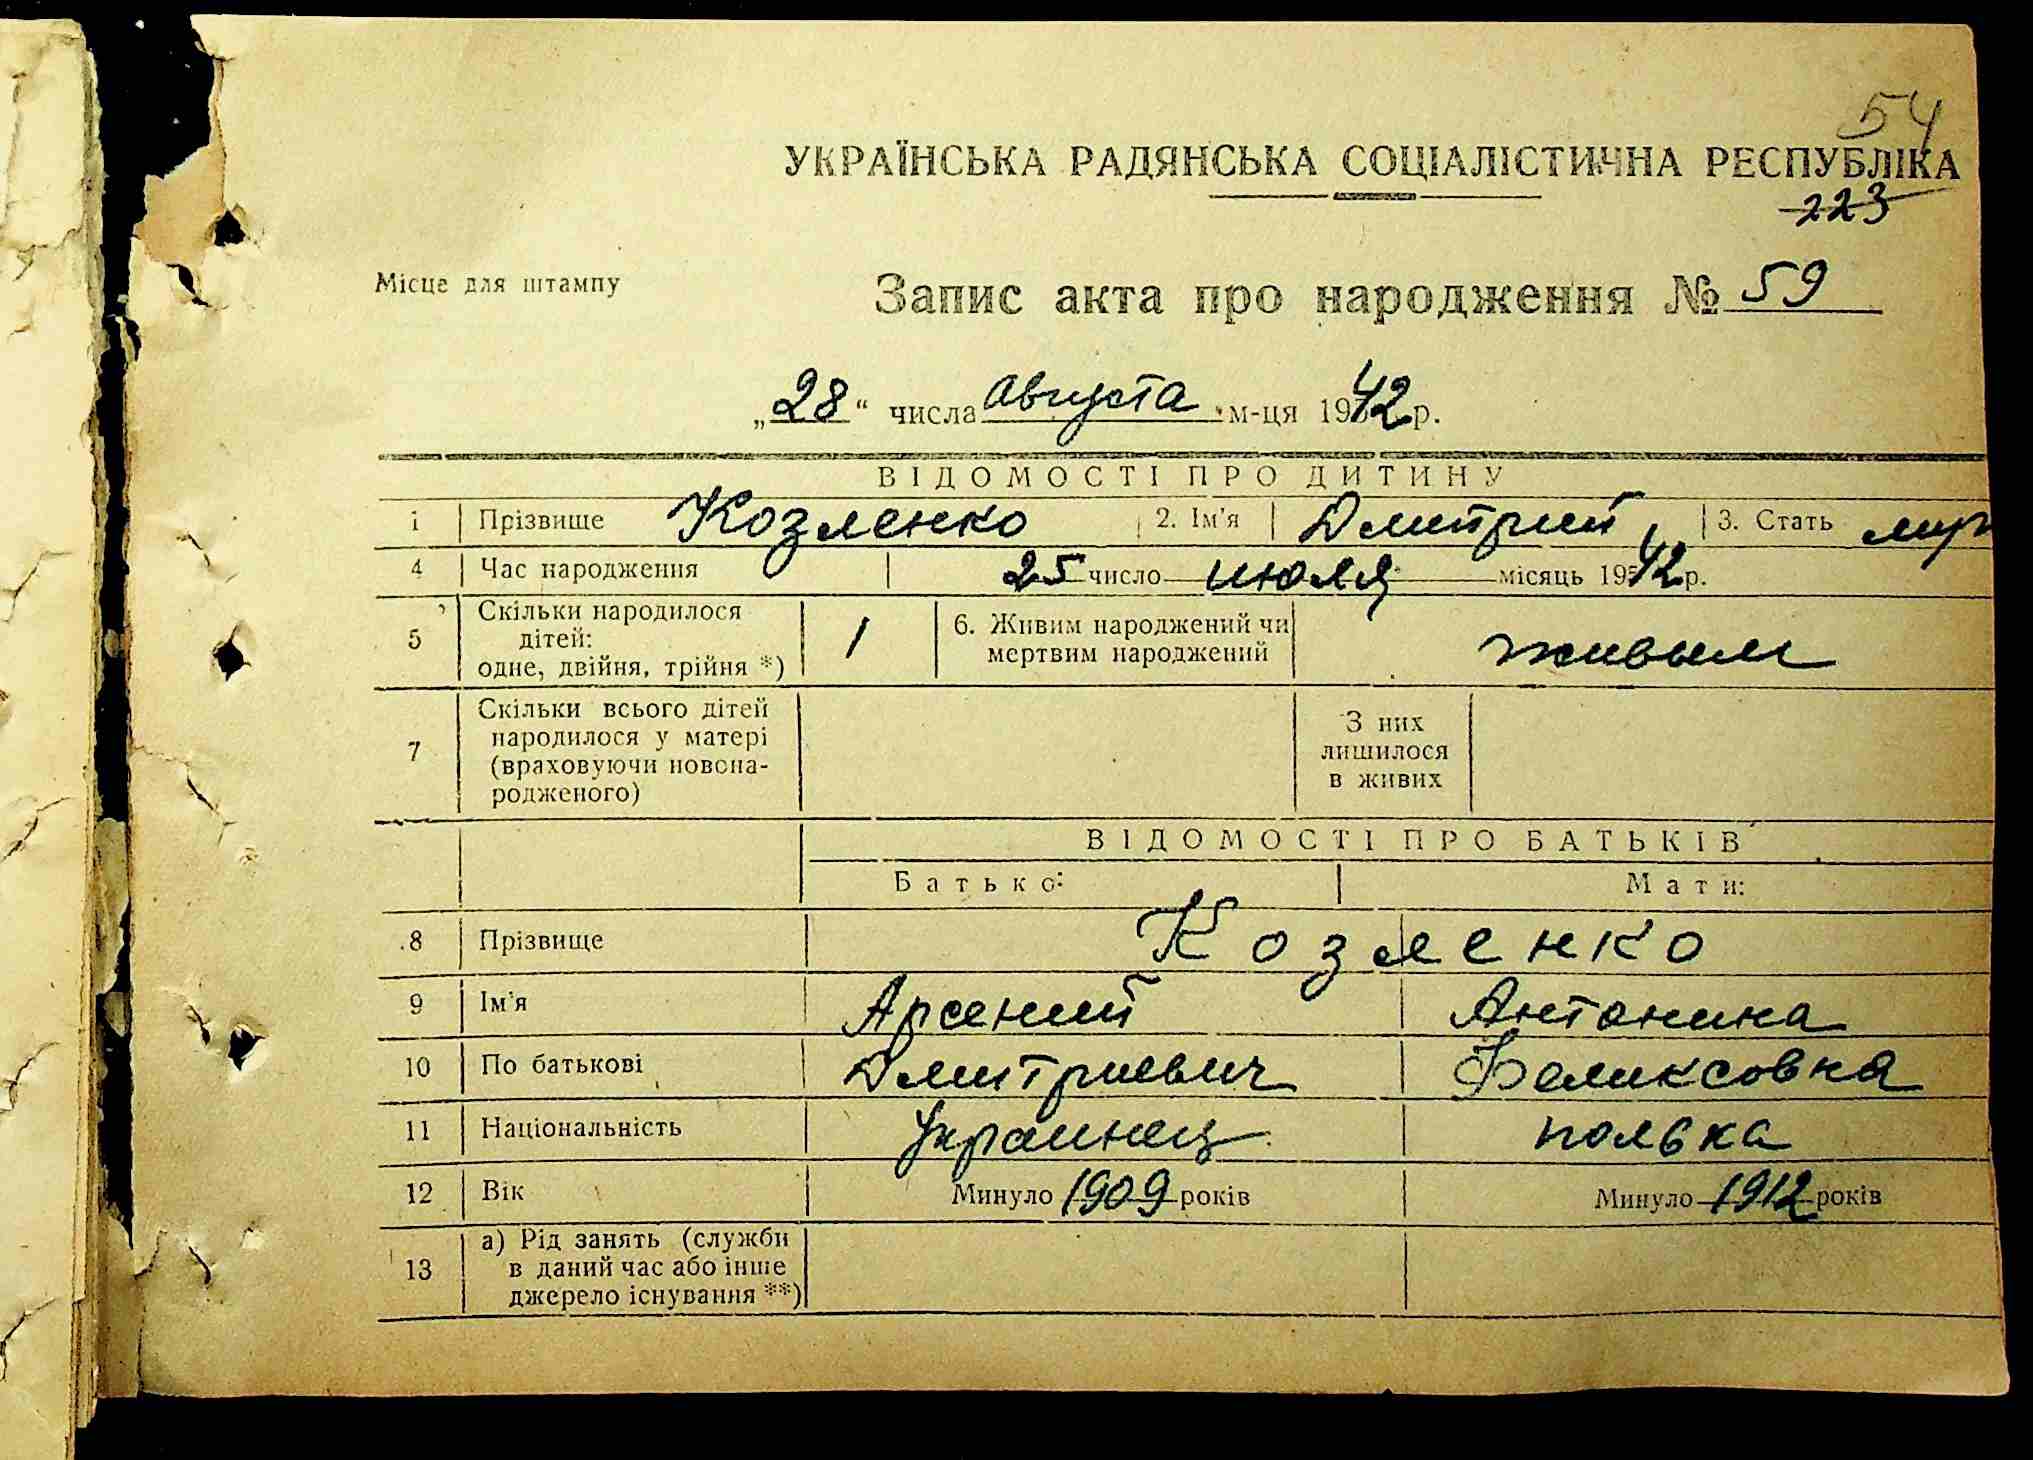 54
УКРАЇНСЬКА РАДЯНСЬКА СОЦІАЛІСТИЧНА РЕСПУБЛІКА
223
Місце для штампу
Запис акта про народження № 59
„28“ числа августа м-ця 1942 р.
ВІДОМОСТІ ПРО ДИТИНУ
1 Прізвище Козленко 2. Ім'я Дмитрий 3. Стать муж
4 Час народження 25 число июля місяць 1942 р.
5 Скільки народилося дітей: одне, двійня, трійня *) 1 6. Живим народжений чи мертвим народжений живым
7 Скільки всього дітей народилося у матері (враховуючи новона-родженого) З них лишилося в живих
ВІДОМОСТІ ПРО БАТЬКІВ
Батько: Мати:
8 Прізвище Козленко
9 Ім'я Арсений Антонина
10 По батькові Дмитриевич Феликсовна
11 Національність Украинец полька
12 Вік Минуло 1909 років Минуло 1912 років
13 а) Рід занять (служби в даний час або інше джерело існування **)